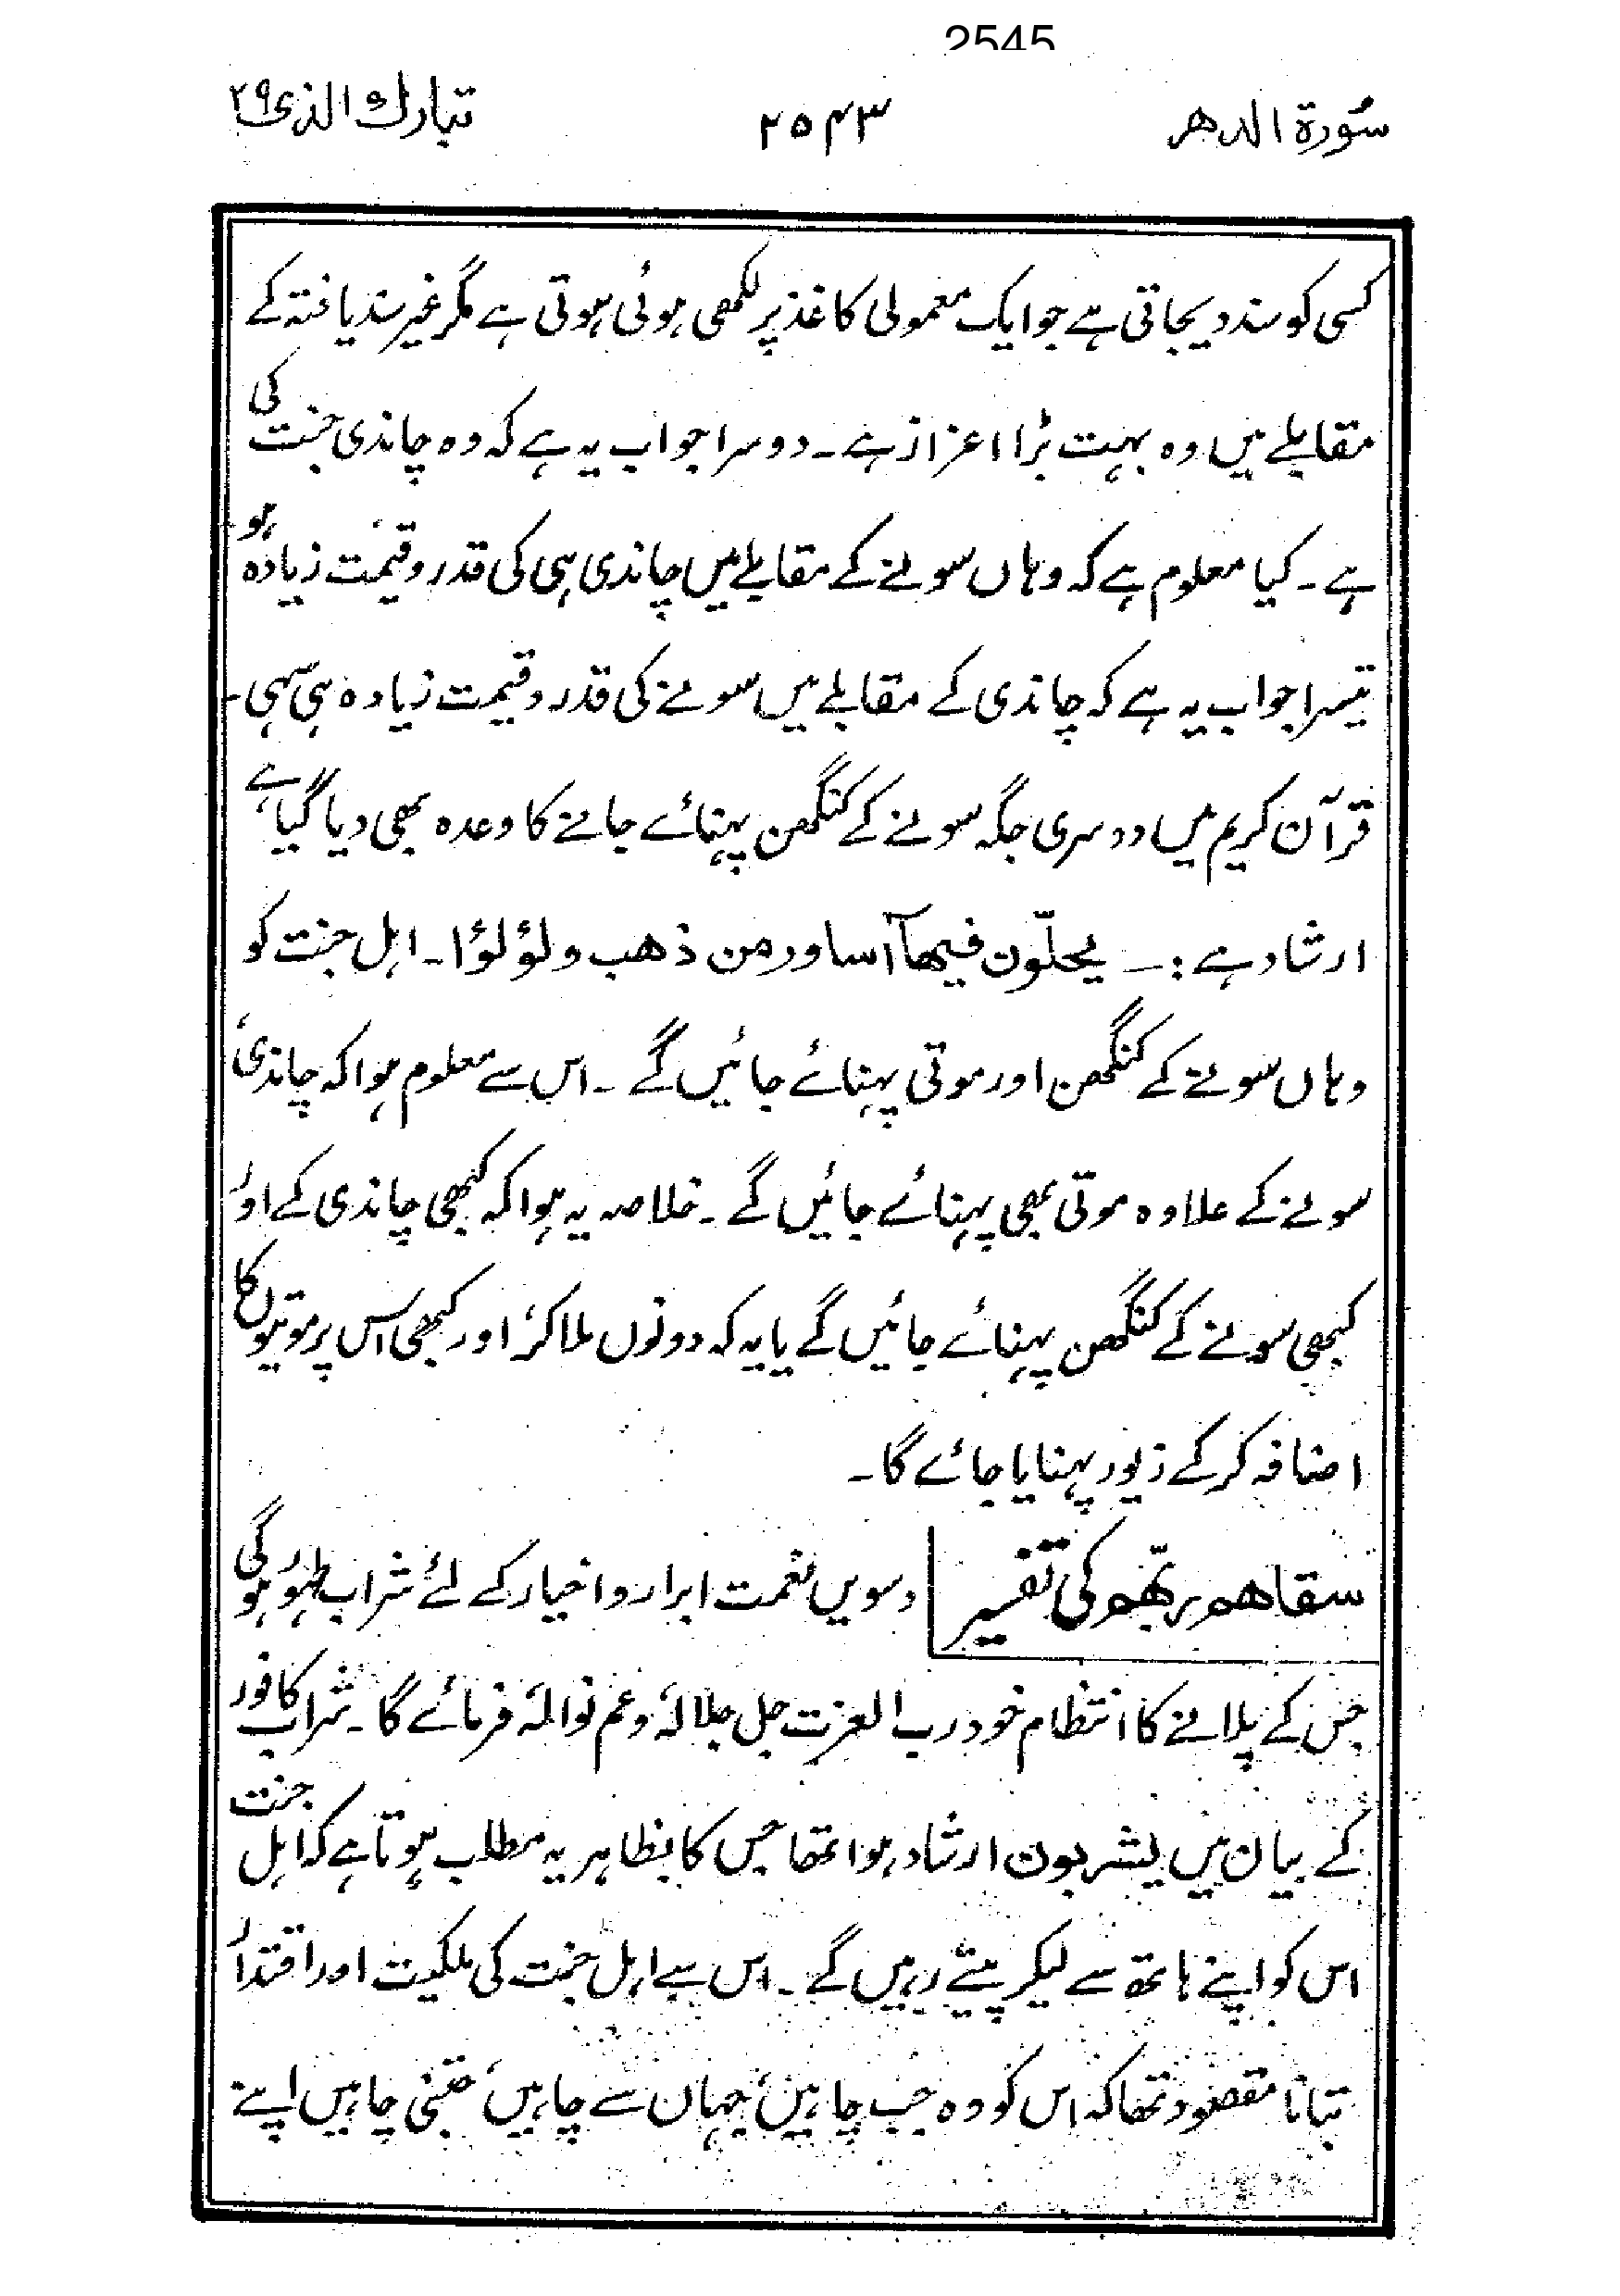 2545
سُورة الدهر ۲۵۴۳ تبارك الذی ۲۹
کسی کو سند دیجاتی ہے جو ایک معمولی کاغذ پر لکھی ہوئی ہوتی ہے مگر غیر سند یافتہ کے
مقابلے میں وہ بہت بڑا اعزاز ہے۔ دوسرا جواب یہ ہے کہ وہ چاندی جنت کی
ہے۔ کیا معلوم ہے کہ وہاں سونے کے مقابلے میں چاندی ہی کی قدر و قیمت زیادہ ہو
تیسرا جواب یہ ہے کہ چاندی کے مقابلے میں سونے کی قدر و قیمت زیادہ ہی سہی۔
قرآن کریم میں دوسری جگہ سونے کے کنگھن پہنائے جانے کا وعدہ بھی دیا گیا ہے
ارشاد ہے :۔ یحلّون فیھآ اساور من ذھب ولؤلؤا۔ اہل جنت کو
وہاں سونے کے کنگھن اور موتی پہنائے جائیں گے۔ اس سے معلوم ہوا کہ چاندی،
سونے کے علاوہ موتی بھی پہنائے جائیں گے۔ خلاصہ یہ ہوا کہ کبھی چاندی کے اور
کبھی سونے کے کنگھن پہنائے جائیں گے یا یہ کہ دونوں ملا کر، اور کبھی اس پر موتیوں کا
اضافہ کر کے زیور پہنایا جائے گا۔
سقاھم ربّھم کی تفسیر دسویں نعمت ابرار و اخیار کے لئے شراب طہور ہو گی
جس کے پلانے کا انتظام خود رب العزت جل جلالہٗ و عم نوالہٗ فرمائے گا۔ شراب کافور
کے بیان میں یشربون ارشاد ہوا تھا جس کا بظاہر یہ مطلب ہوتا ہے کہ اہل جنت
اس کو اپنے ہاتھ سے لیکر پیتے رہیں گے۔ اس سے اہل جنت کی ملکیت اور اقتدار
بتانا مقصود تھا کہ اس کو وہ جب چاہیں، جہاں سے چاہیں، جتنی چاہیں اپنے